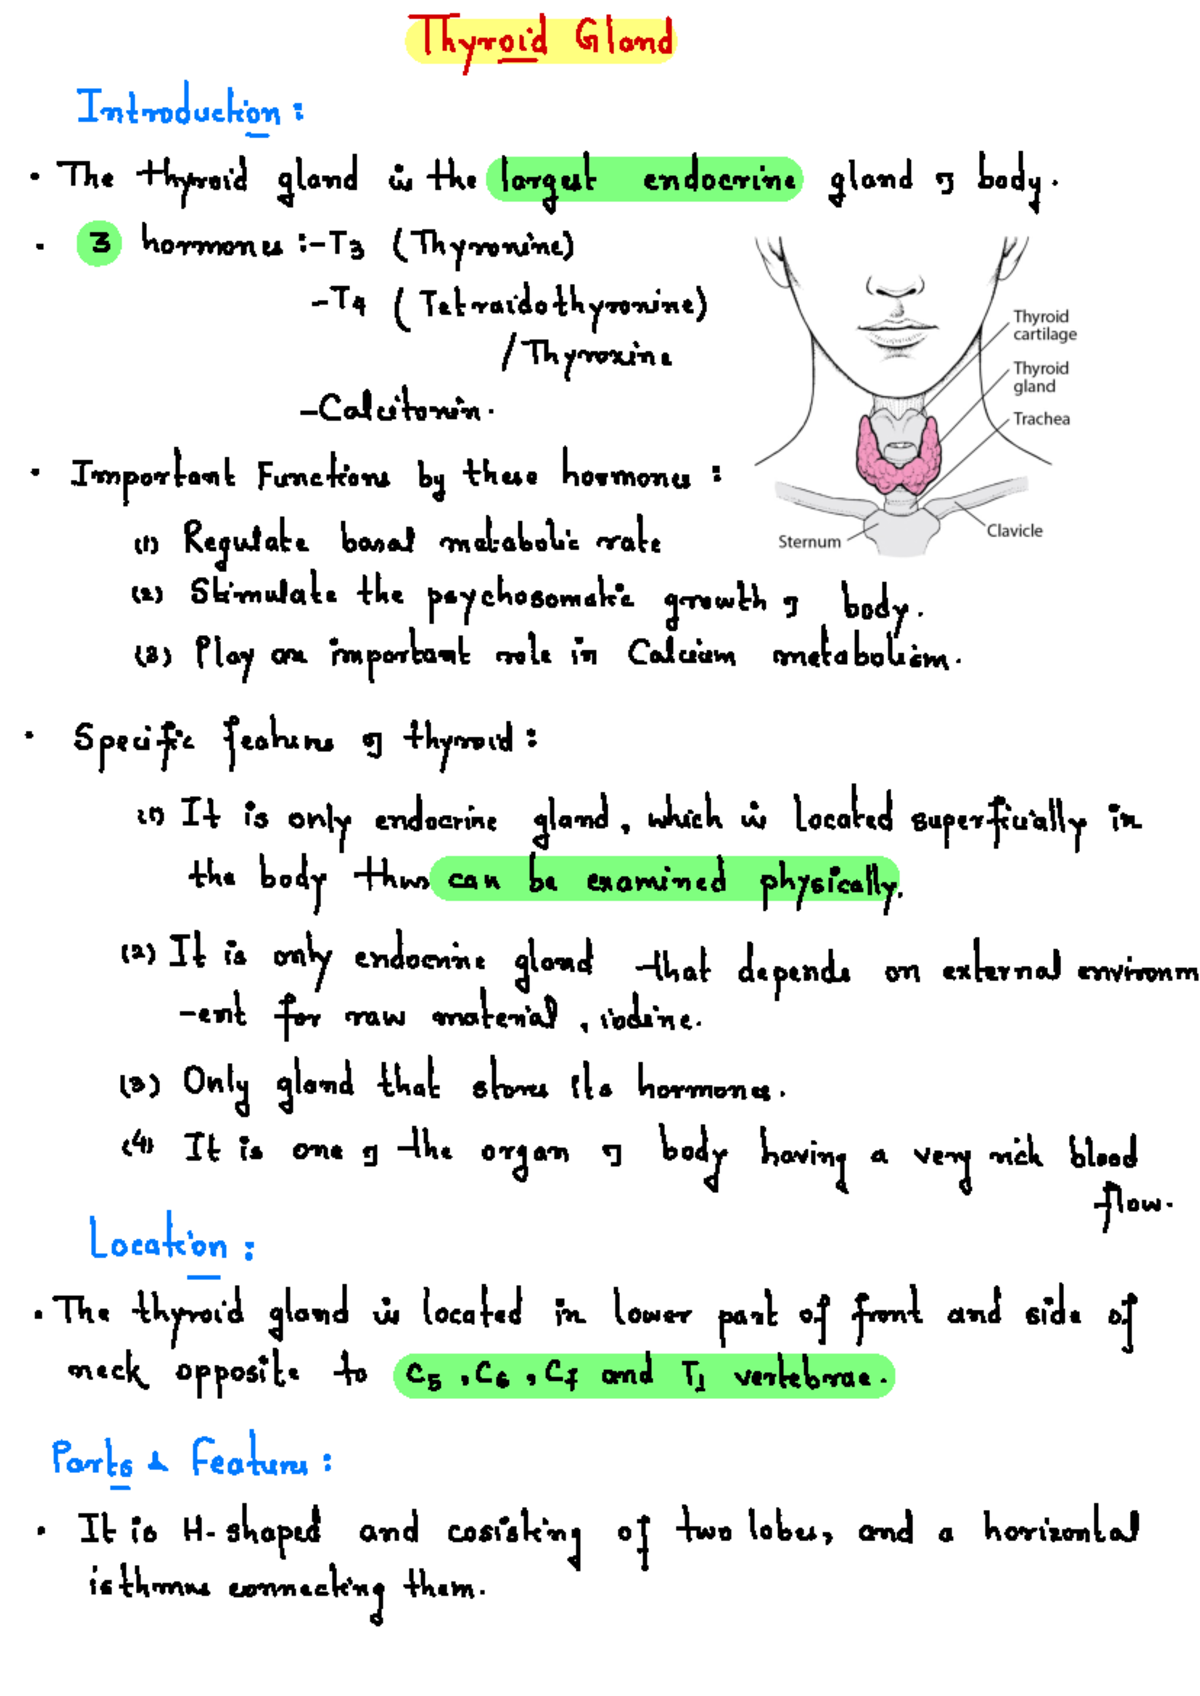 Thyroid Gland
Introduction :
• The thyroid gland is the largest endocrine gland of body.
• 3 hormones :- T3 (Thyronine)
- T4 ( Tetraidothyronine)
/ Thyroxine
- Calcitonin.
Thyroid
cartilage
Thyroid
gland
Trachea
Clavicle
Sternum
• Important Functions by these hormones :
(1) Regulate basal metabolic rate
(2) Stimulate the psychosomatic growth of body.
(3) Play an important role in Calcium metabolism.
• Specific features of thyroid :
(1) It is only endocrine gland, which is located superficially in
the body thus can be examined physically.
(2) It is only endocrine gland that depends on external environm
-ent for raw material, iodine.
(3) Only gland that stores its hormones.
(4) It is one of the organ of body having a very rich blood
flow.
Location :
• The thyroid gland is located in lower part of front and side of
neck opposite to C5, C6, C7 and T1 vertebrae.
Parts & Features :
• It is H-shaped and cosisting of two lobes, and a horizontal
isthmus connecting them.